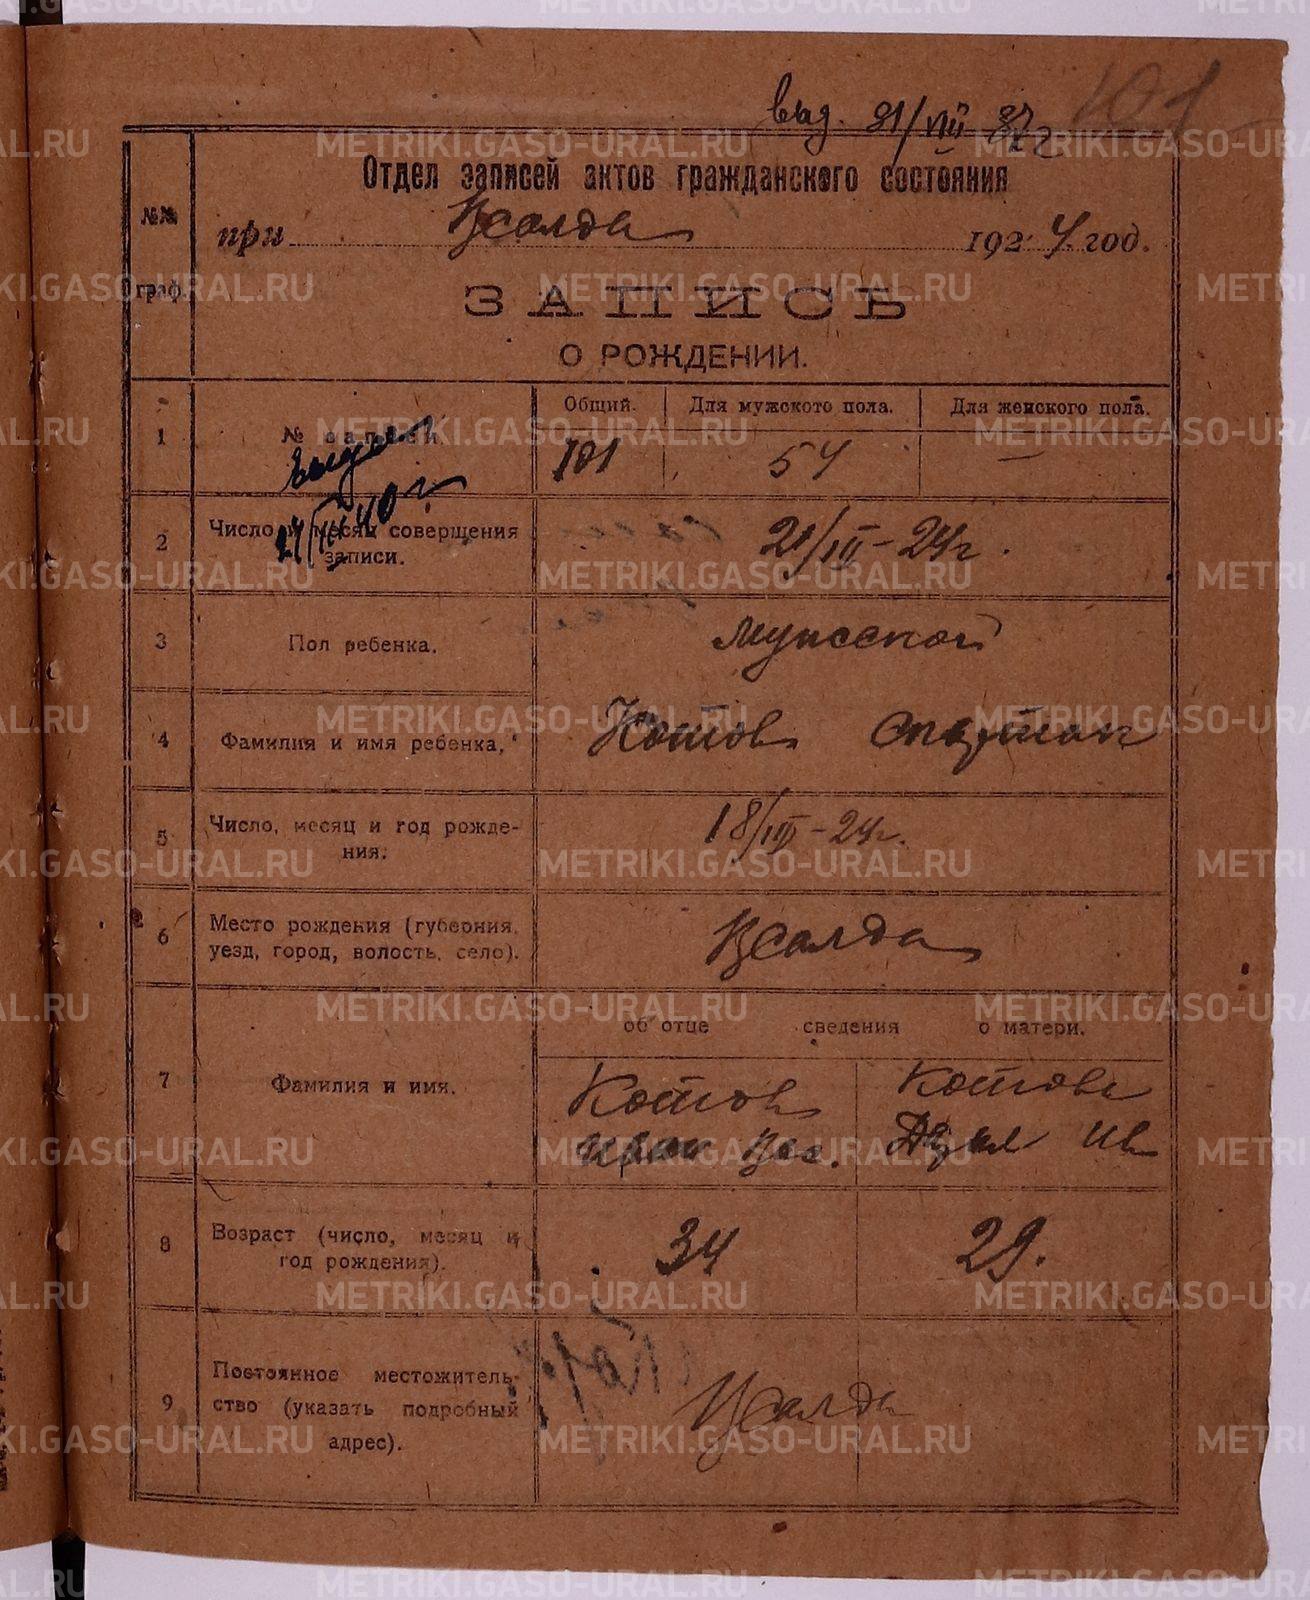 выд. 31/VIII 37г
101
Отдел записей актов гражданского состояния
№№
при В.салда 1924 год.
граф.
ЗАПИСЬ
О РОЖДЕНИИ.
Общий. Для мужского пола. Для женского пола.
1 № записи 101 54 —
2 Число и месяц совершения записи. 21/III-24г.
3 Пол ребенка. Мужской
4 Фамилия и имя ребенка. Котов Спартак
5 Число, месяц и год рожде-
ния. 18/III-24г.
6 Место рождения (губерния,
уезд, город, волость, село). В салда
об отце сведения о матери.
7 Фамилия и имя. Котов Котова
Иван Вас. Ив
8 Возраст (число, месяц и
год рождения). 34 29.
9 Постоянное местожитель-
ство (указать подробный
адрес). В салда
METRIKI.GASO-URAL.RU